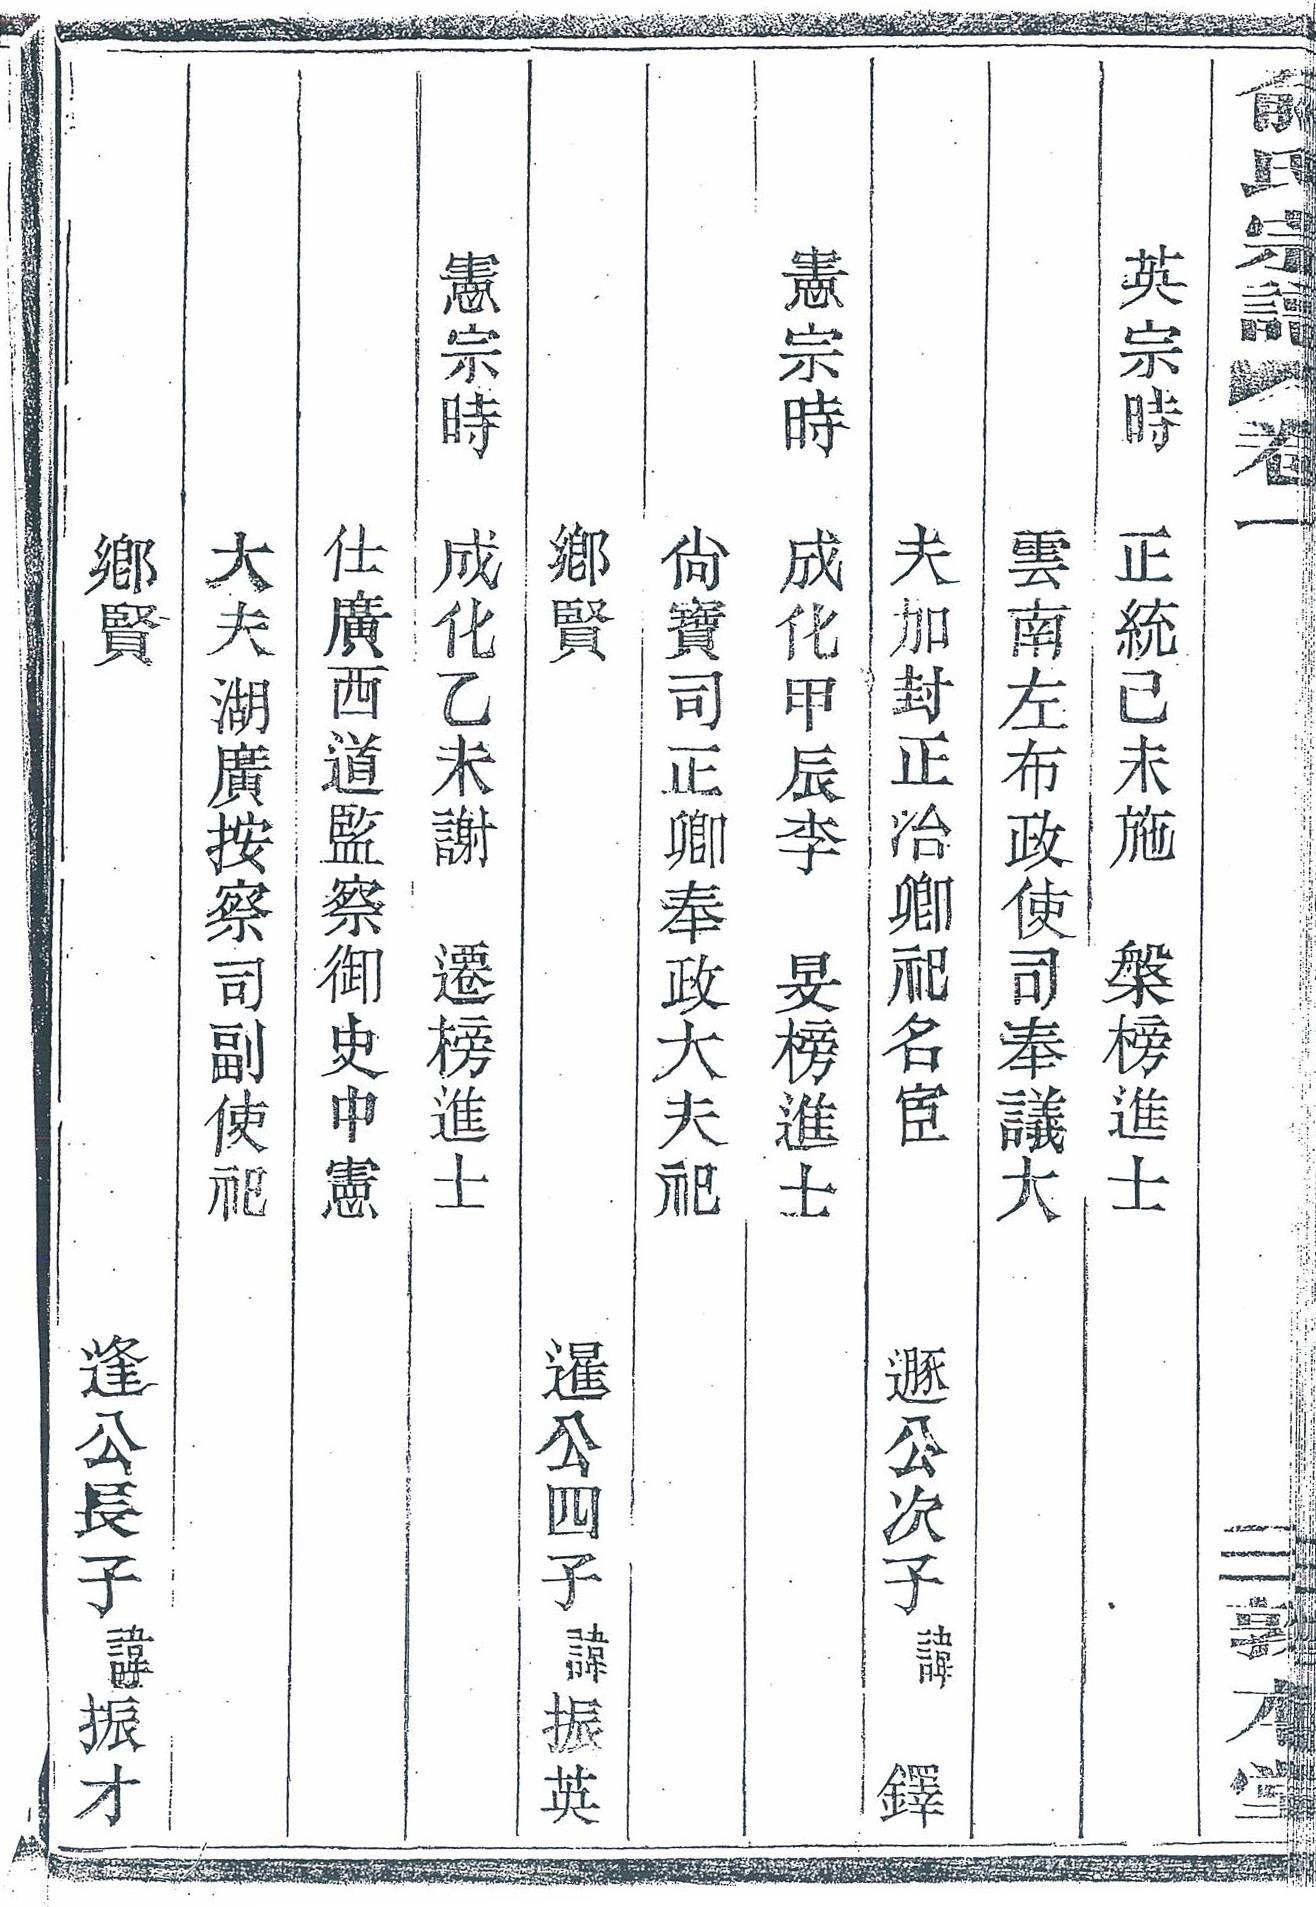 俞氏宗譜 卷一 三 敦本堂
英宗時 正統己未施 槃榜進士
雲南左布政使司奉議大
夫加封正治卿祀名宦 遯公次子 諱 鐸
憲宗時 成化甲辰李 旻榜進士
尙寶司正卿奉政大夫祀
鄉賢 暹公四子 諱振英
憲宗時 成化乙未謝 遷榜進士
仕廣西道監察御史中憲
大夫湖廣按察司副使祀
鄉賢 逢公長子 諱振才